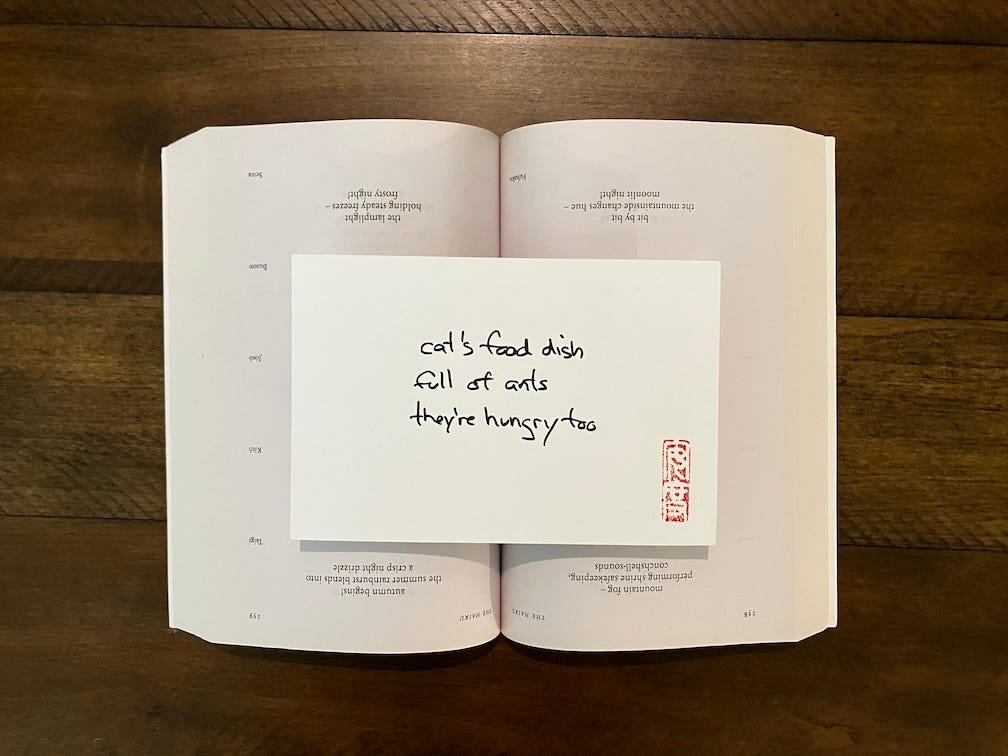 cat's food dish
full of ants
they're hungry too
158
THE HAIKU
mountain fog –
performing shrine safekeeping,
conchshell-sounds
bit by bit
the mountainside changes hue –
moonlit night!
THE HAIKU
159
autumn begins!
the summer rainburst blends into
a crisp night drizzle
Taigi
Kitō
Jōsō
Buson
the lamplight
holding steady freezes –
frosty night!
Seira